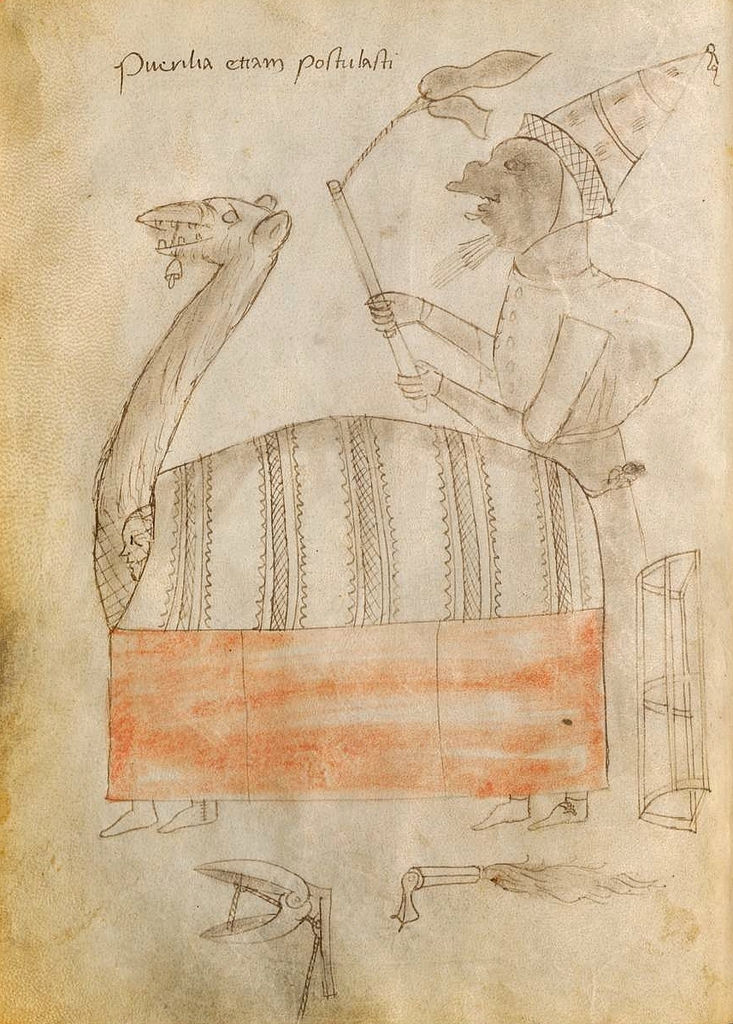 Puerilia etiam postulasti